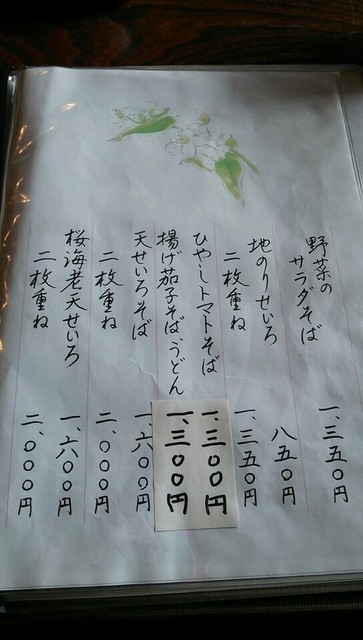 野菜の
サラダそば 一、三五〇円
地のりせいろ 八五〇円
二枚重ね 一、三五〇円
ひやしトマトそば 一、三〇〇円
揚げ茄子そば、うどん 一、三〇〇円
天せいろそば 一、六〇〇円
二枚重ね 二、〇〇〇円
桜海老天せいろ 一、六〇〇円
二枚重ね 二、〇〇〇円